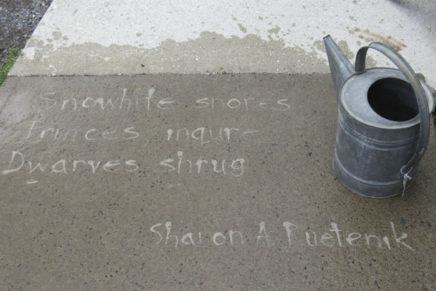 Snowhite snores
Princes inqure
Dwarves shrug
Sharon A Puetenik